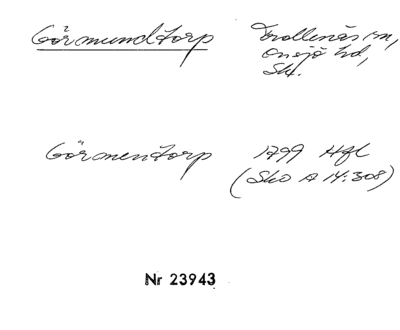 Görmundtorp Trollenäs sn,
Onsjö hd,
Sk.
Görmentorp 1799 Hfl
(Sko A 14:308)
Nr 23943